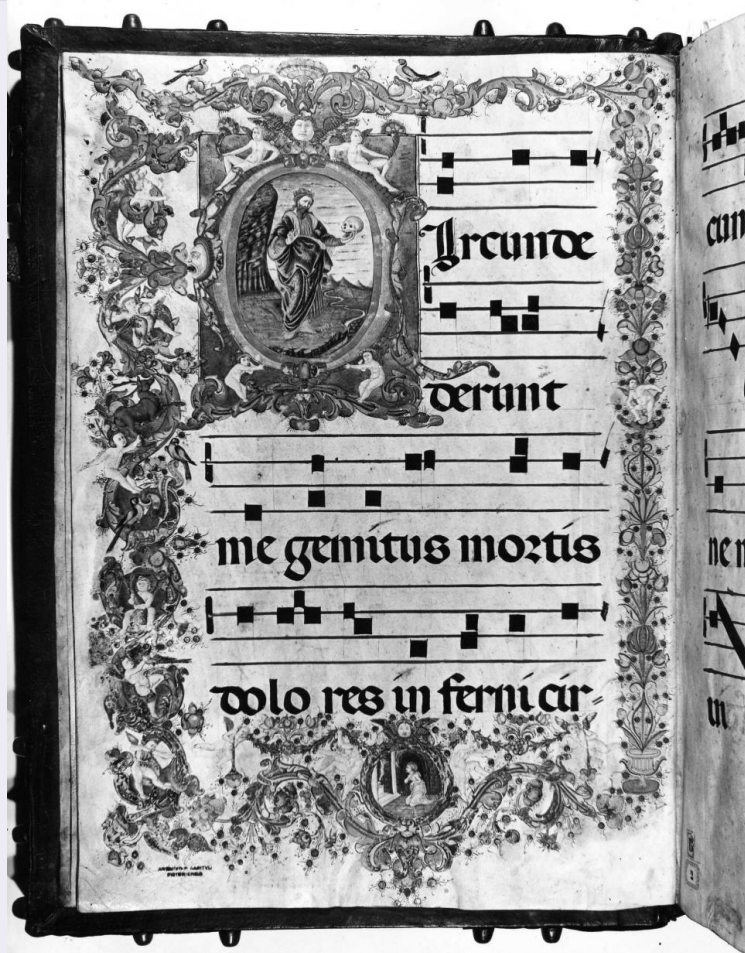 CIrcunde
derunt
me gemitus mortis
dolo res in ferni cir=
cun
ne n
in